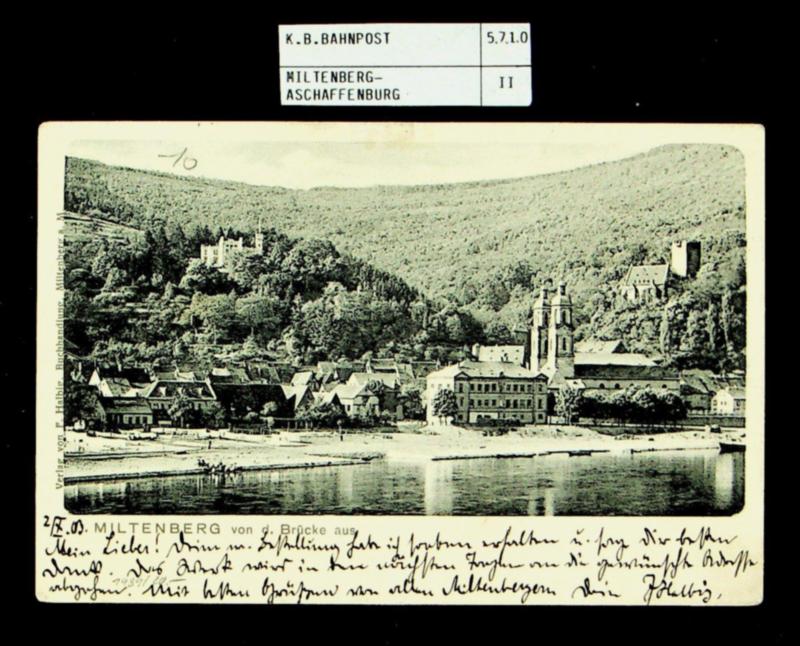 K.B.BAHNPOST 5.7.1.0
MILTENBERG-
ASCHAFFENBURG II
10
Verlag von F. Halbig, Buchhandlung, Miltenberg a. M.
2/X.03. MILTENBERG von d. Brücke aus
Mein Lieber! Deine w. Bestellung habe ich soeben erhalten u. sag Dir besten
Dank. Das Werk wird in den nächsten Tagen an die gewünschte Adresse
abgehen. Mit besten Grüßen von allen Miltenbergern Dein FHalbig.